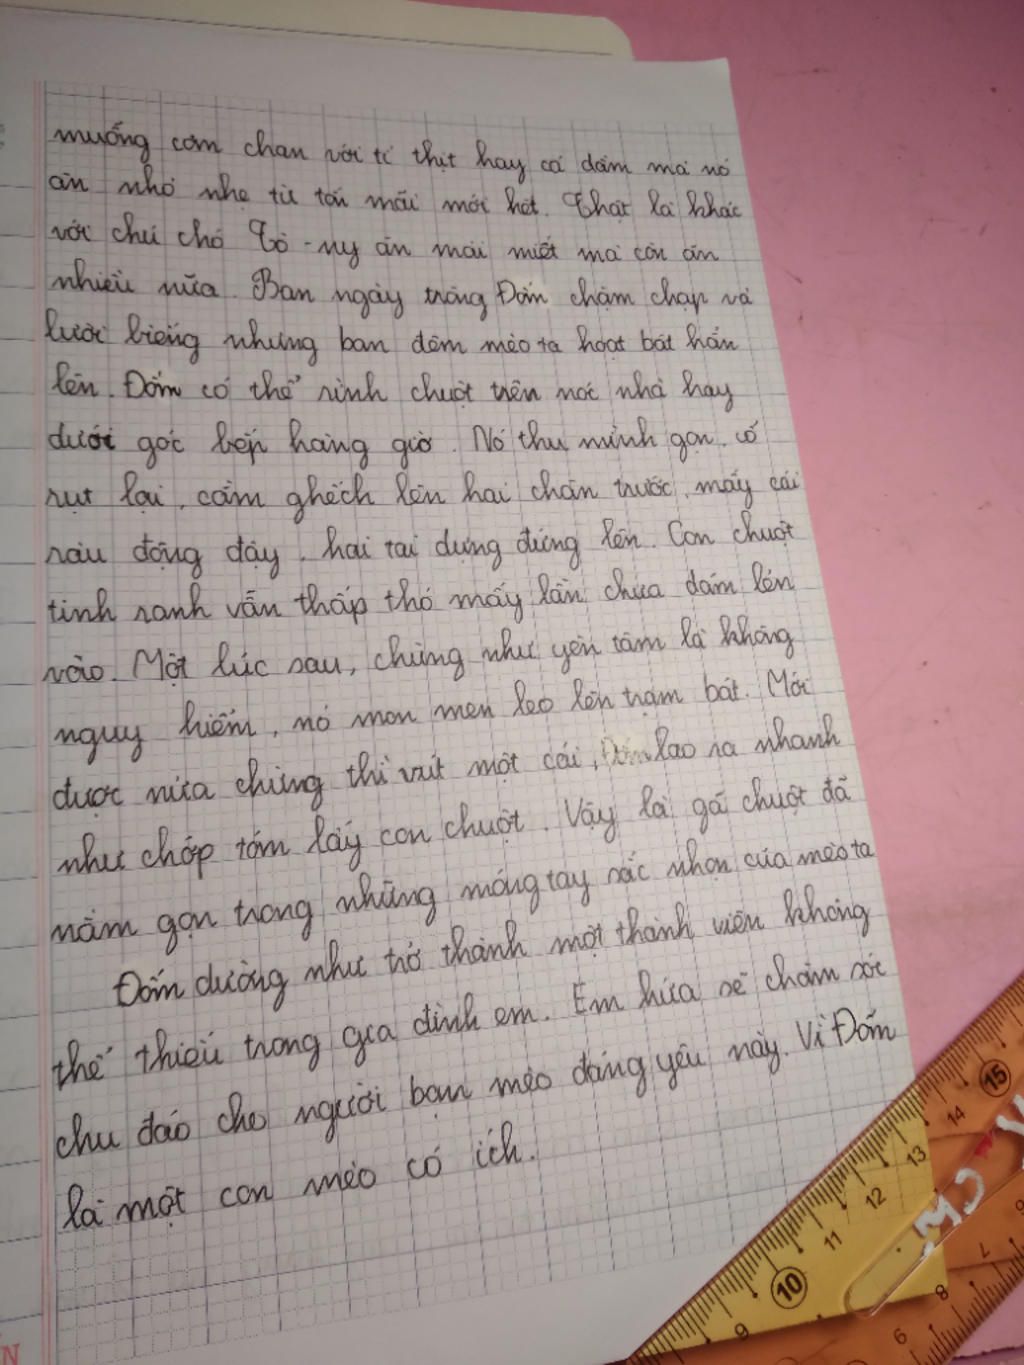 muống cơm chan với tí thịt hay cá dầm mà nó
ăn nhỏ nhẹ từ tốn mãi mới hết. Thật là khác
với chú chó Tô-ny ăn mải miết mà còn ăn
nhiều nữa. Ban ngày trông Đốm chậm chạp và
lười biếng nhưng ban đêm mèo ta hoạt bát hẳn
lên. Đốm có thể rình chuột trên nóc nhà hay
dưới góc bếp hàng giờ. Nó thu mình gọn, cổ
rụt lại, cằm ghếch lên hai chân trước, mấy cái
râu động đậy, hai tai dựng đứng lên. Con chuột
tinh ranh vẫn thấp thó mấy lần chưa dám lẻn
vào. Một lúc sau, chừng như yên tâm là không
nguy hiểm, nó mon men leo lên trạm bát. Mới
được nửa chừng thì vút một cái, Đốm lao ra nhanh
như chớp tóm lấy con chuột. Vậy là gã chuột đã
nằm gọn trong những móng tay sắc nhọn của mèo ta
Đốm dường như trở thành một thành viên không
thể thiếu trong gia đình em. Em hứa sẽ chăm sóc
chu đáo cho người bạn mèo đáng yêu này. Vì Đốm
là một con mèo có ích.
N
9
10
11
12
13
14
15
6
7
8
9